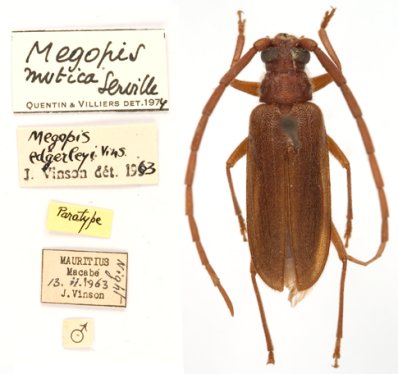 Megopis
mutica Serville
QUENTIN & VILLIERS DET. 1974
Megopis
edgerleyi Vins.
J. Vinson dét. 1963
Paratype
MAURITIUS
Macabé
13. II.1963
J. Vinson
Night
♂